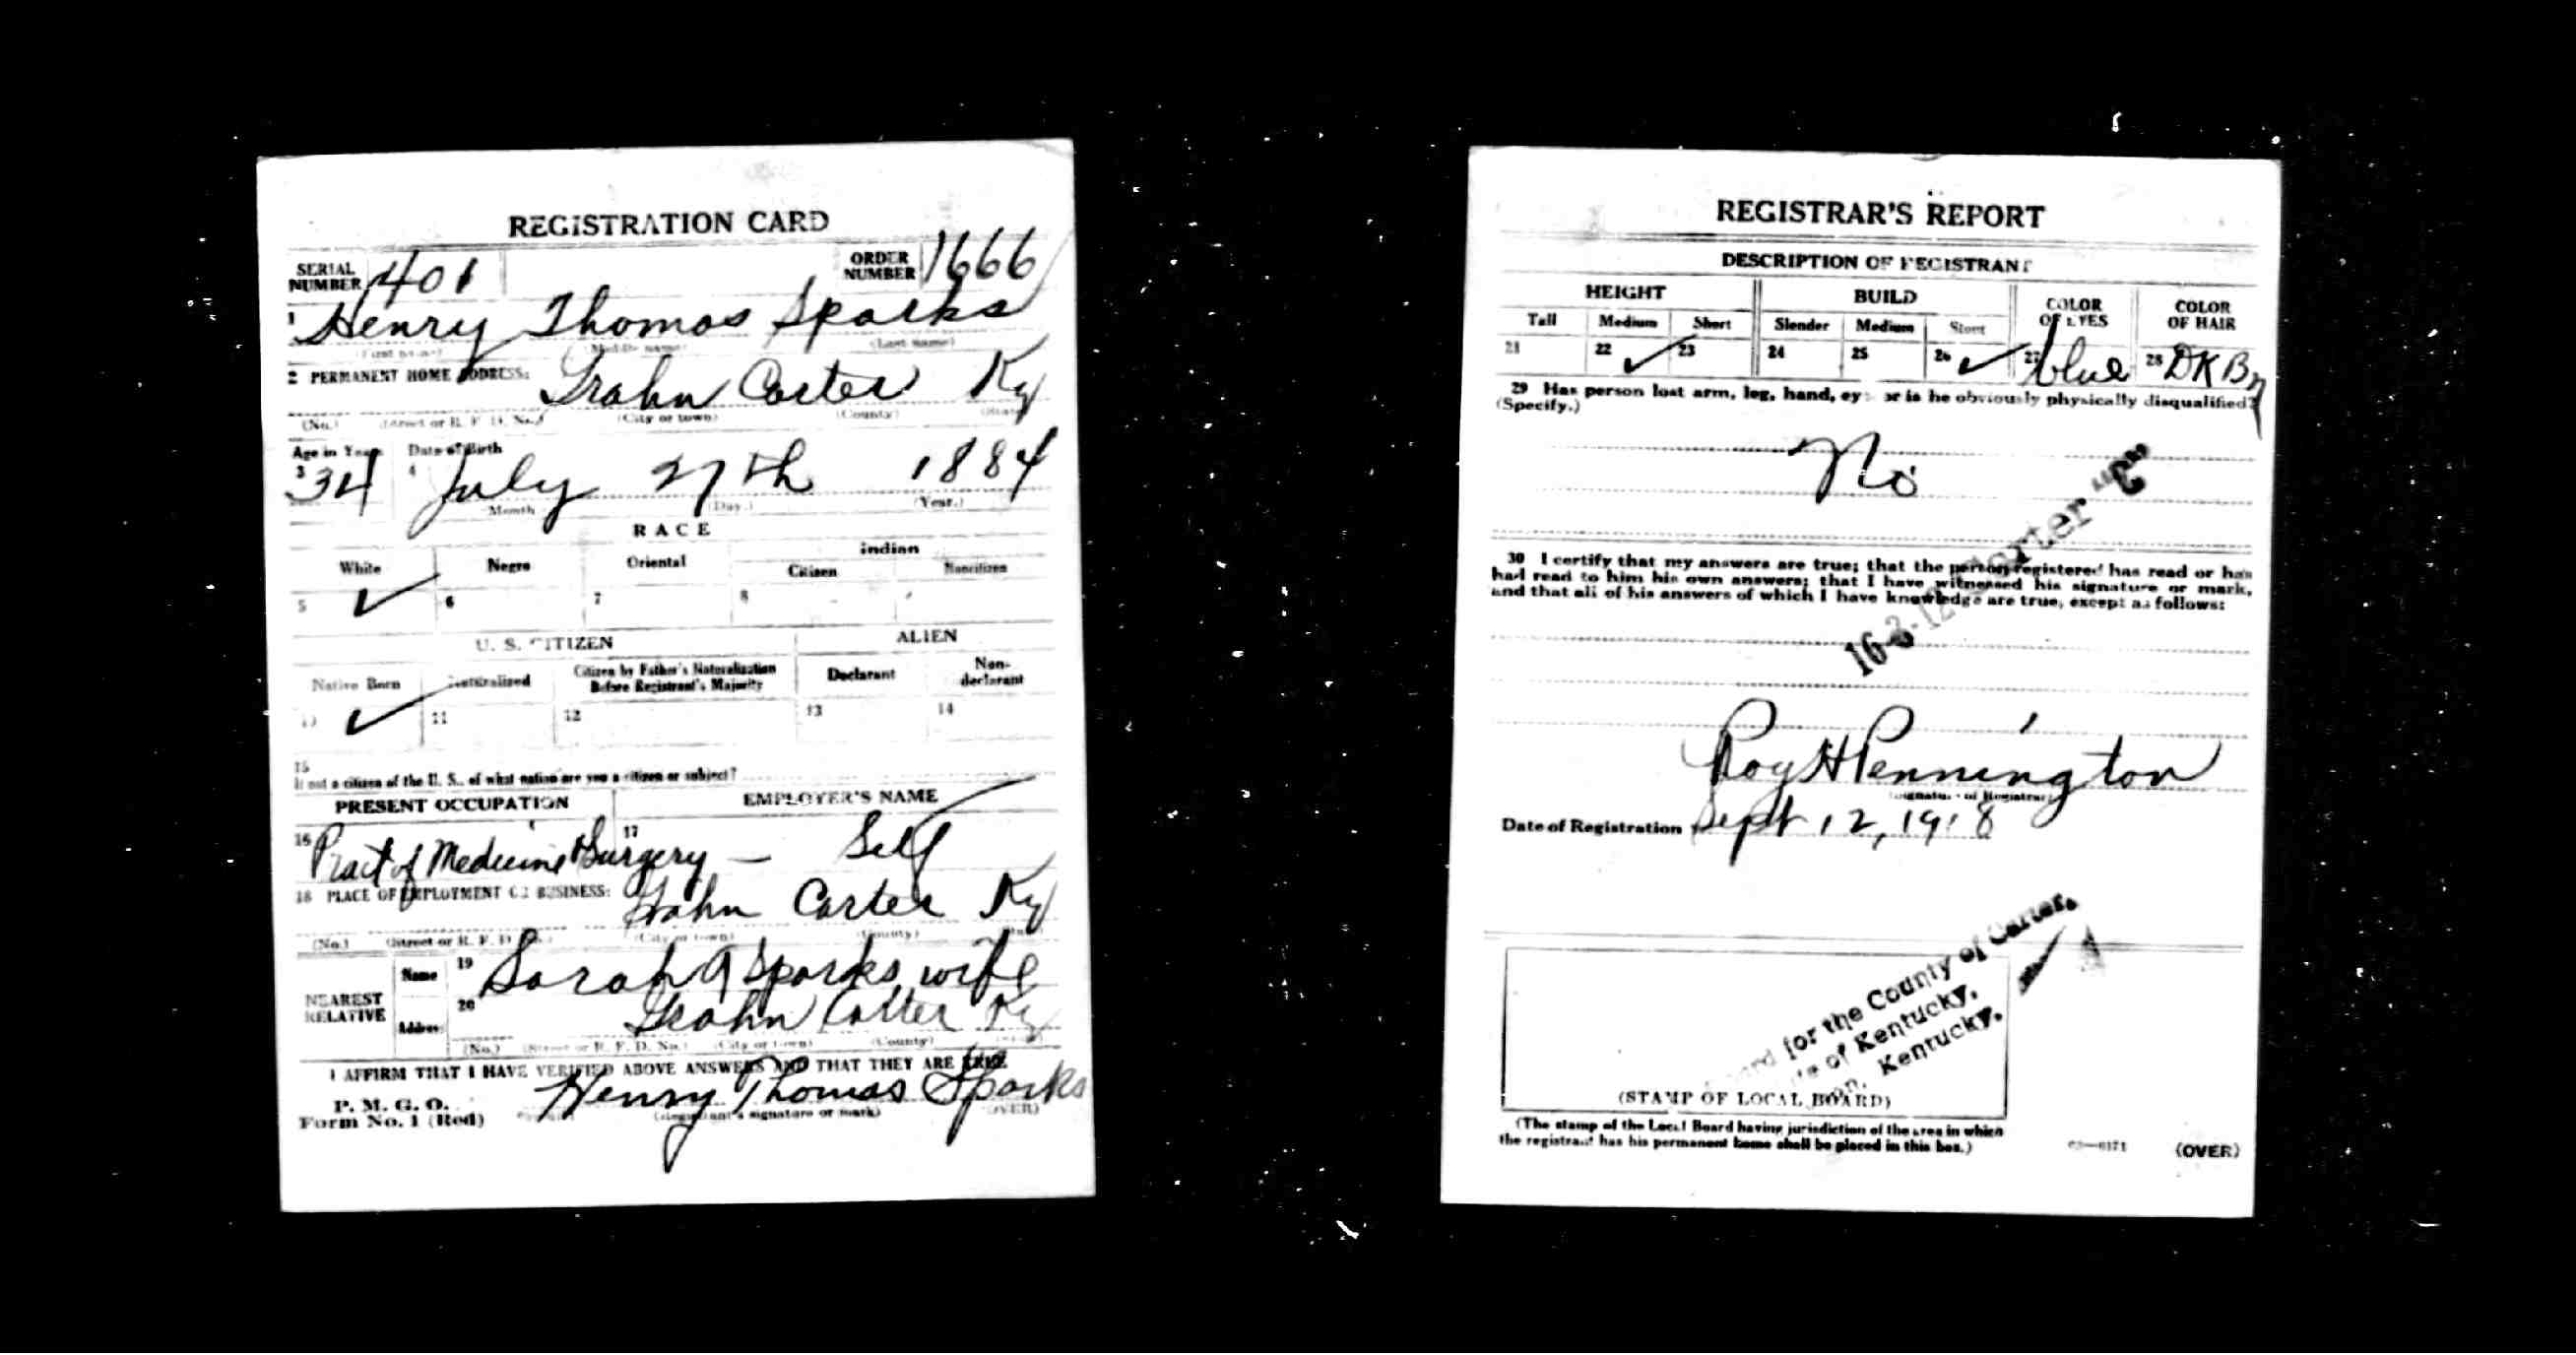 REGISTRATION CARD
SERIAL NUMBER 401 ORDER NUMBER 1666
1 Henry Thomas Sparks
(First name) (Middle name) (Last name)
2 PERMANENT HOME ADDRESS: Grahn Carter Ky
(No.) (Street or R. F. D. No.) (City or town) (County) (State)
Age in Years Date of Birth
3 34 4 July 27th 1884
Month (Day.) (Year.)
RACE
White Negro Oriental Indian
Citizen Noncitizen
5 ✓ 6 7 8
U. S. CITIZEN ALIEN
Native Born Naturalized Citizen by Father's Naturalization Before Registrant's Majority Declarant Non-declarant
10 ✓ 11 12 13 14
15
If not a citizen of the U. S., of what nation are you a citizen or subject?
PRESENT OCCUPATION EMPLOYER'S NAME
16 Pract of Medicine & Surgery — 17 Self
18 PLACE OF EMPLOYMENT OR BUSINESS: Grahn Carter Ky
(No.) (Street or R. F. D. No.) (City or town) (County)
NEAREST RELATIVE Name 19 Sarah A Sparks wife
Address 20 Grahn Carter Ky
(No.) (Street or R. F. D. No.) (City or town) (County)
I AFFIRM THAT I HAVE VERIFIED ABOVE ANSWERS AND THAT THEY ARE TRUE
P. M. G. O.
Form No. 1 (Red) Henry Thomas Sparks
(Registrant's signature or mark) (OVER)
REGISTRAR'S REPORT
DESCRIPTION OF REGISTRANT
HEIGHT BUILD COLOR OF EYES COLOR OF HAIR
Tall Medium Short Slender Medium Stout
21 22 ✓ 23 24 25 26 ✓ 27 blue 28 DK Bn
29 Has person lost arm, leg, hand, eye or is he obviously physically disqualified?
(Specify.)
No
16-3-12 Carter "C"
30 I certify that my answers are true; that the person registered has read or has
had read to him his own answers; that I have witnessed his signature or mark,
and that all of his answers of which I have knowledge are true, except as follows:
Roy H Pennington
(Signature of Registrar)
Date of Registration Sept 12, 1918
for the County of Carter,
of Kentucky,
Kentucky.
(STAMP OF LOCAL BOARD)
(The stamp of the Local Board having jurisdiction of the area in which
the registrant has his permanent home shall be placed in this box.)
(OVER)